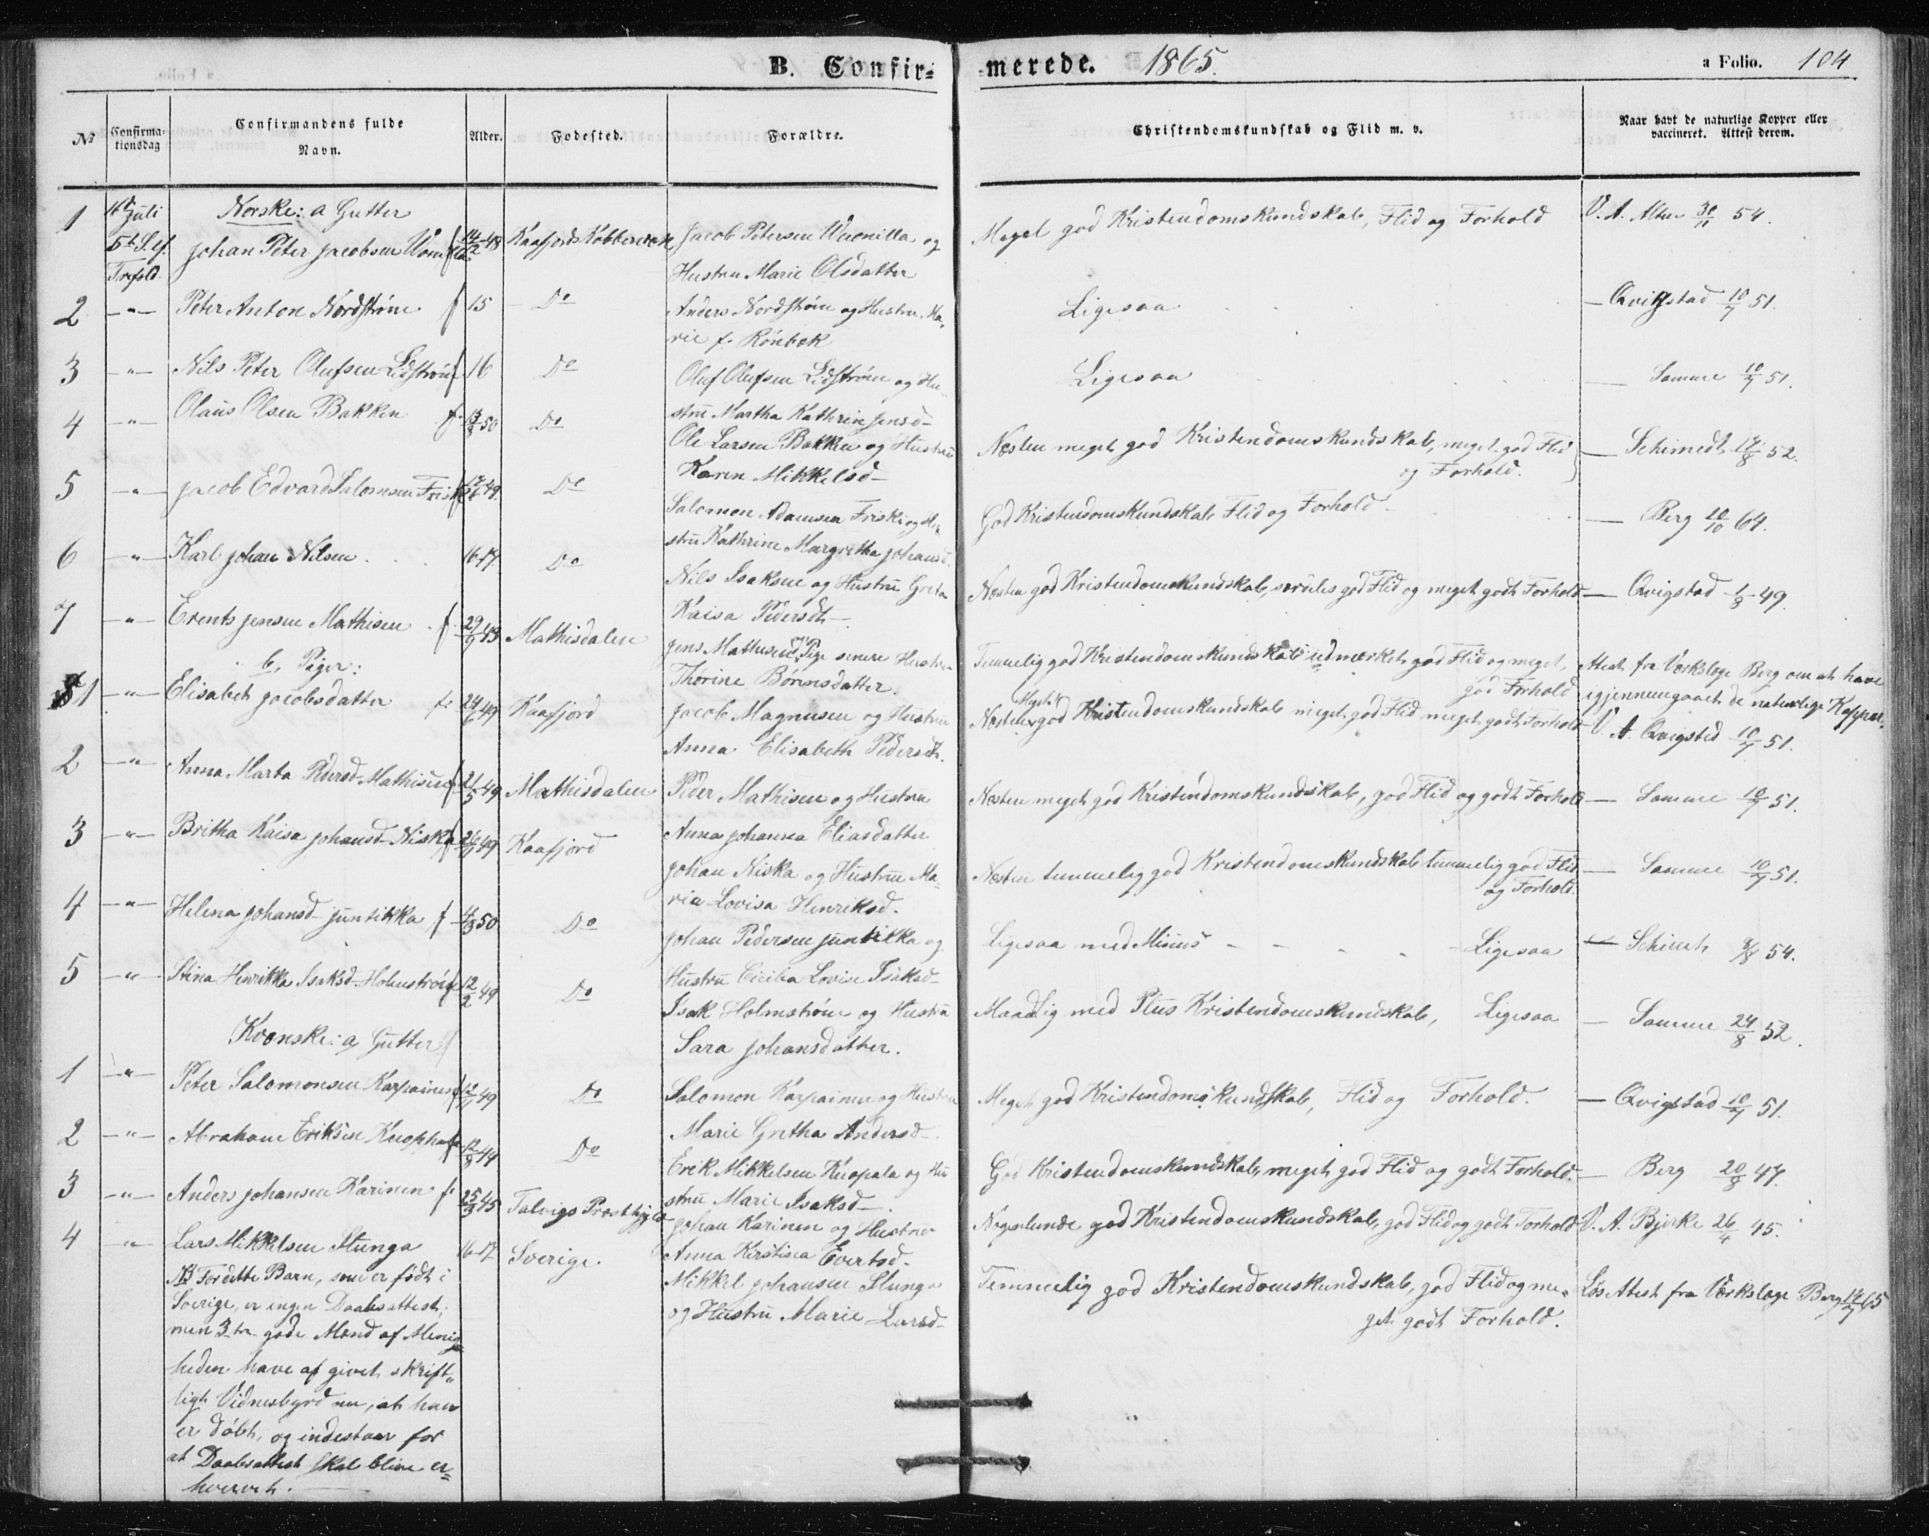 B. Confir-merede. 1865. a Folio. 104
No
Confirma-tionsdag
Confirmandens fulde Navn.
Alder.
Fodested.
Forældre.
Christendomskundskab og Flid m. v.
Naar havt de naturlige Kopper eller vaccineret. Attest derom.
Norske: a Gutter
1 16de Juli 5t S. ef. Trefold. Johan Peter Jacobsen f 14/2 48 Kaafjords Kobberværk Jacob Petersen Weronilla og
Hustru Marie Olsdatter
Meget god Kristendomskundskab, Flid og Forhold V. A. Alten 30/11 54.
2 -"- Peter Anton Nordstrøm f 15 Do Anders Nordstrøm og Hustru Ma-
rie f. Rönbæk
Ligesaa — Qvigstad 10/7 51.
3 -"- Nils Peter Olufsen Lidstrøm f 16 Do Oluf Olufsen Lidstrøm og Hu-
stru Martha Kathrin Jensd-
Ligesaa — Samme 10/7 51.
4 -"- Olaus Olsen Bakken f. 50 Do Ole Larsen Bakken og Hustru
Karen Mikkelsd-
Næsten meget god Kristendomskundskab, meget god Flid
og Forhold. — Schimedt 17/8 52.
5 -"- Jacob Edvard Salomsen Friski f 49. Do Salomon Adamsen Friski og Hu-
stru Kathrine Margretha Johansd.
God Kristendomskundskab Flid og Forhold. — Berg 20/10 64.
6 -"- Karl Johan Nilsen 16-17 Do Nils Isaksen og Hustru Greta
Kaisa Pedersdt-
Næsten god Kristendomskundskab, særdeles god Flid og meget godt Forhold — Qvigstad 1/8 49.
7 -"- Erents Jensen Mathisen f. 29/9 43 Mathisdalen Jens Mathisen Pige senere Hustru
Thorine Börnsdatter.
Temmelig god Kristendomskundskab udmærket god Flid og meget
god Forhold Attest fra Værkslæge Berg om at have
igjennemgaaet de naturlige Kopper.
b, Piger:
1 -"- Elisabet Jacobsdatter f. 24/6 49 Kaafjord Jacob Magnusen og Hustru
Anna Elisabeth Pedersdt.
Næsten meget god Kristendomskundskab meget god Flid meget godt Forhold V. A. Qvigstad 10/7 51.
2 -"- Anna Marta Pedersd- Mathisen f 21/5 49 Mathisdalen Peder Mathisen og Hustru
Anna Johanna Eliasdatter
Næsten meget god Kristendomskundskab, god Flid og godt Forhold — Samme 10/7 51.
3 -"- Britha Kaisa Johansd- Niska f 49 Kaafjord Johan Niska og Hustru Ma-
ria Lovisa Henriksd.
Næsten temmelig god Kristendomskundskab temmelig god Flid
og Forhold. — Samme 10/7 51.
4 -"- Helena Johansd- Juntikka f 4/3 50 Do Johan Pedersen Juntikka og
Hustru Cicilia Lovise Isaksd-
Ligesaa med Minus - - - - Ligesaa — 9/8 54.
5 -"- Stina Henrikka Isaksd- Holmstrøm f 12/2 49 Do Isak Holmstrøm og Hustru
Sara Johansdatter.
Maadlig med Plus Kristendomskundskab, Ligesaa — Samme 24/8 52.
Kvænske: a, Gutter
1 -"- Peter Salomonsen Karpainen f 49 Do Salomon Karpainen og Hustru
Marie Gretha Andersd-
Meget god Kristendomskundskab, Flid og Forhold. — Qvigstad 10/7 51.
2 -"- Abraham Eriksen f 44 Do Erik Mikkelsen Knopala og Hu
stru Marie Isaksd-.
God Kristendomskundskab, meget god Flid og godt Forhold. — Berg 20/8 47.
3 -"- Anders Johansen Karinen f. 25/3 45 Talvigs Præstegjeld Johan Karinen og Hustru
Anna Kirstina Evertsd-
Nogenlunde god Kristendomskundskab, god Flid og godt Forhold V. A. Bjerke 26/4 45.
4 " Lars Mikkelsen Stunga 16-17 Sverige Mikkel Johansen Stunga
og Hustru Marie Larsd-
Temmelig god Kristendomskundskab, god Flid og me-
get godt Forhold. Løs Attest fra Værkslæge Berg 65
NB For dette Barn, som er født i
Sverige, er ingen Daabsattest,
men 3 tr. gode Mænd af Menig-
heden have af givet skrift-
ligt Vidnesbyrd om, at han
er døbt, og indestaar for
at Daabsattest skal blive er-
hvervet.